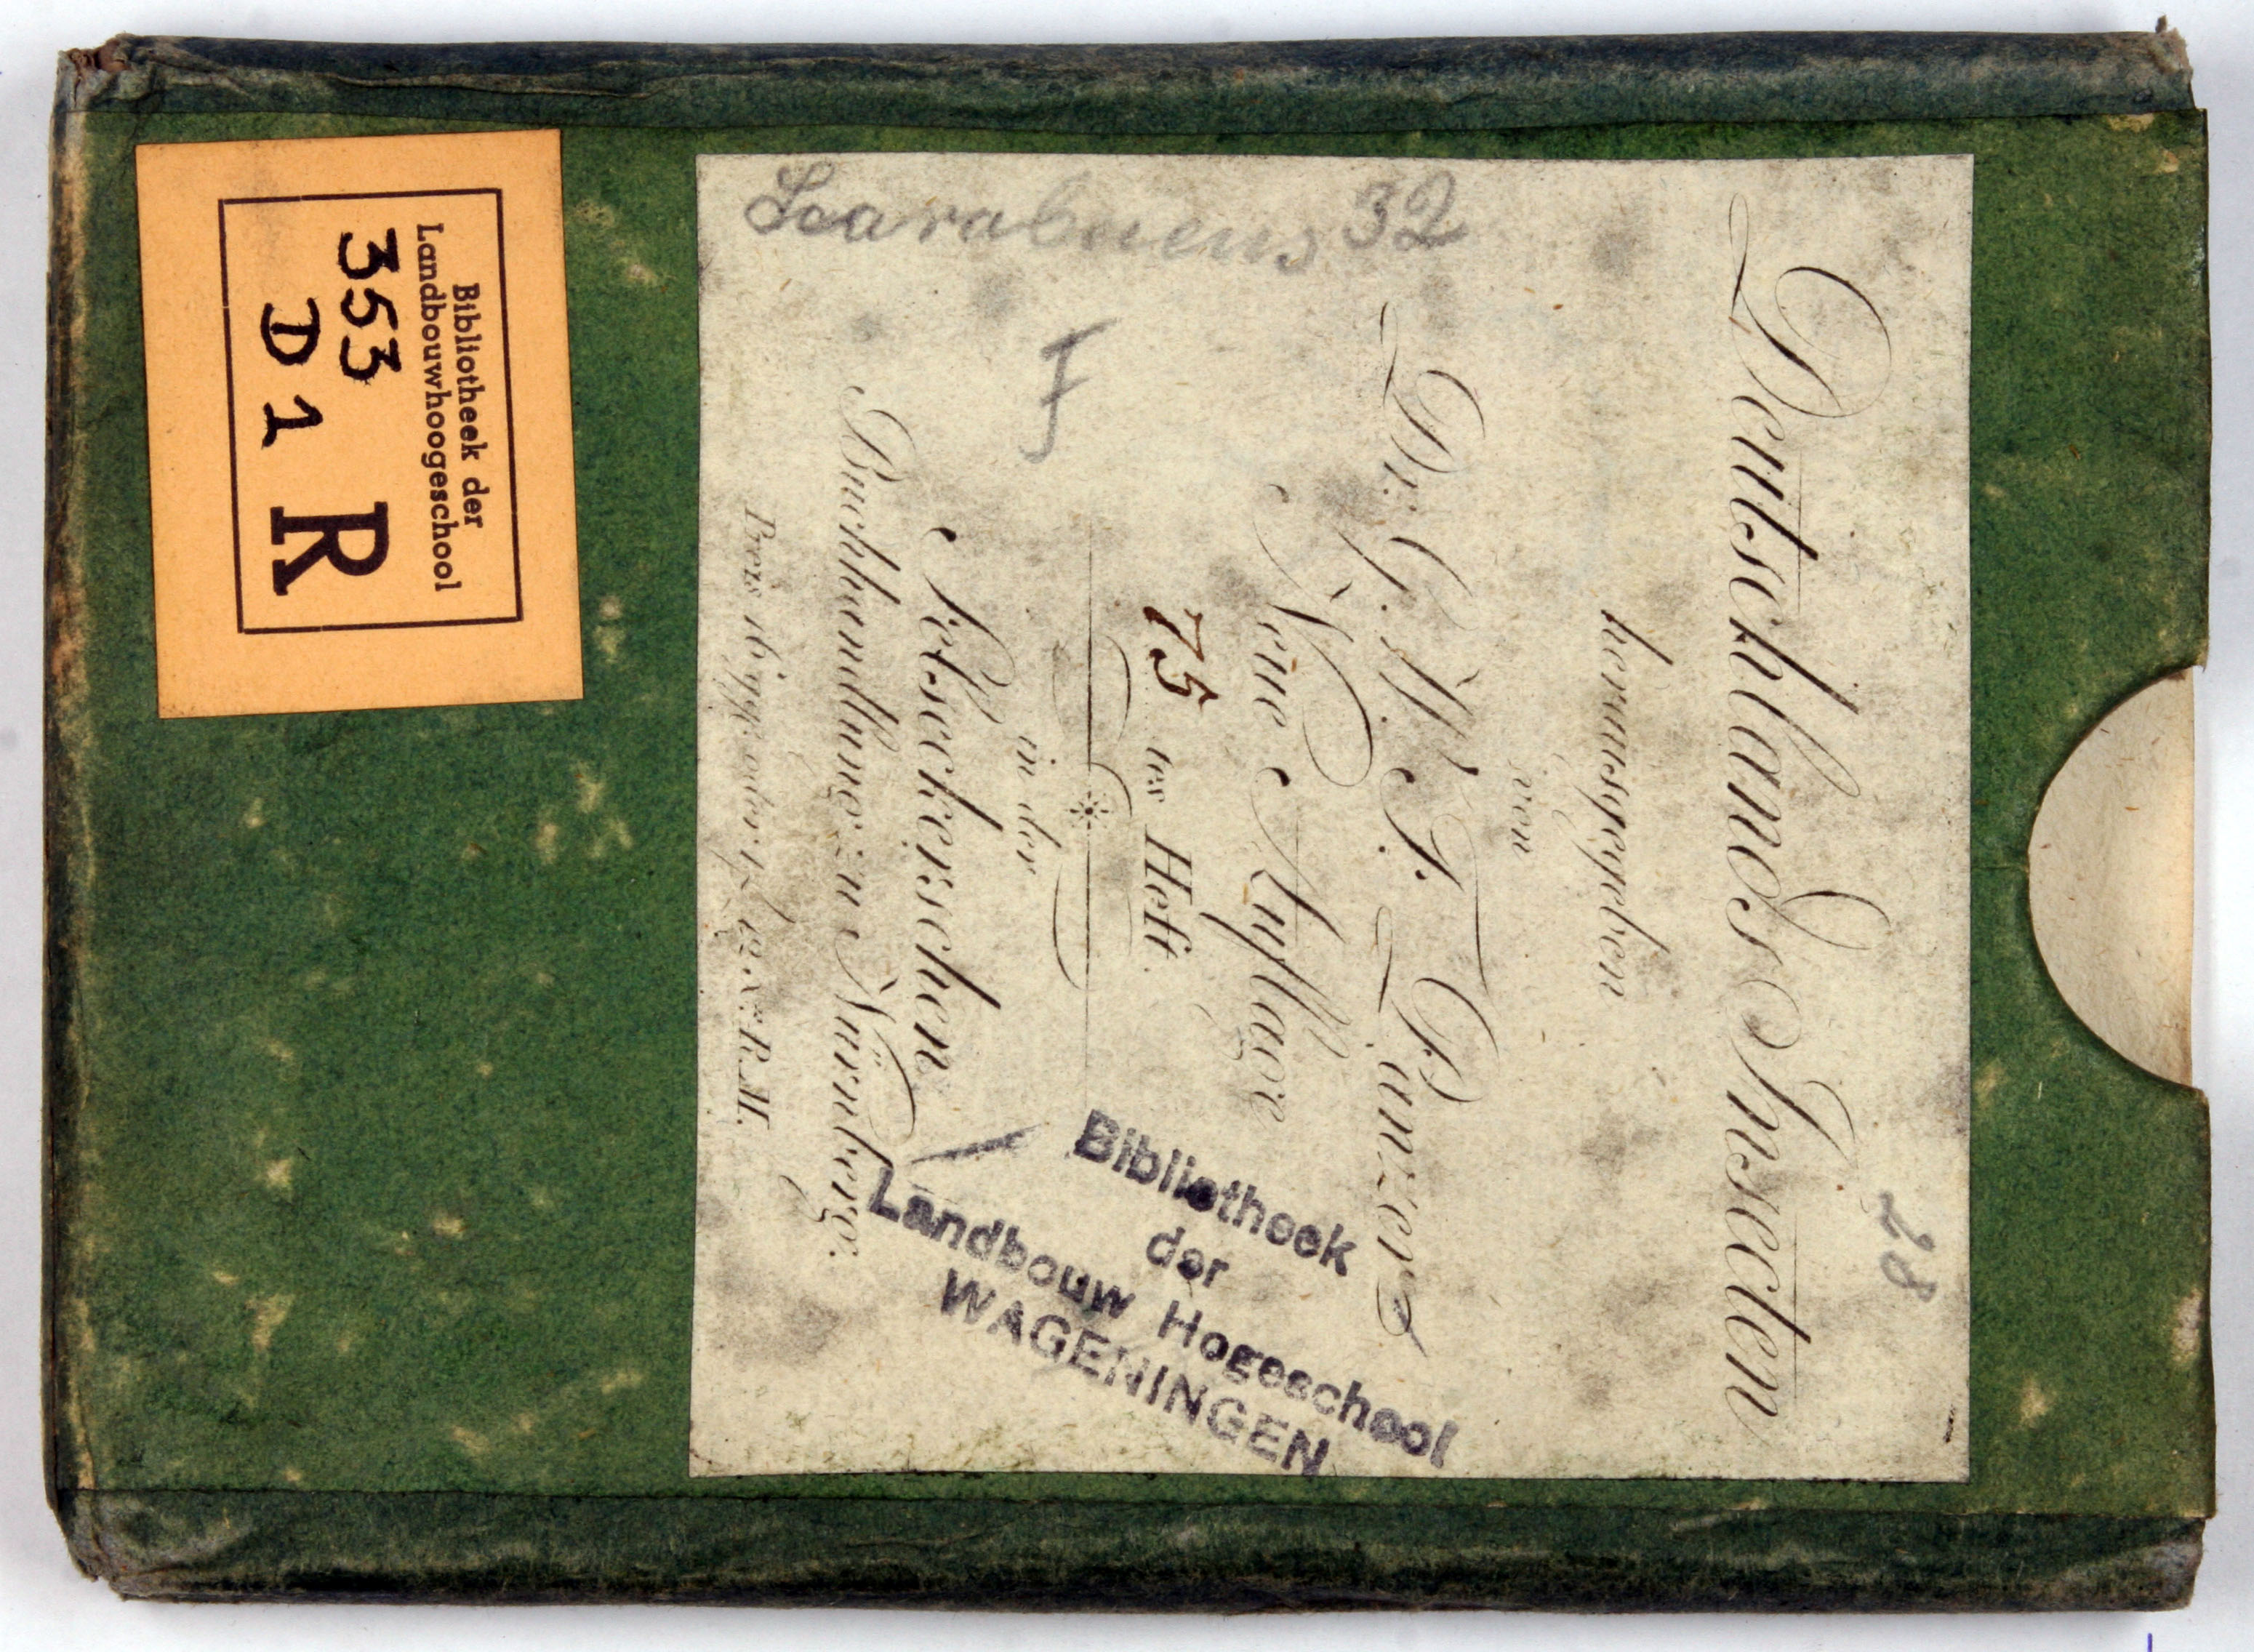 Scarabaeus 32
87
Deutschlands Insecten
herausgegeben
von
Dr. G. W. F. Panzer
Neue Auflage
75 tes Heft.
F
in der
Felseckerschen
Buchhandlung zu Nürnberg.
Preis 16 ggr. oder 1 f 12 Xr. R. M.
Bibliotheek
der
Landbouw Hogeschool
WAGENINGEN
Bibliotheek der
Landbouwhoogeschool
353
D 1 R